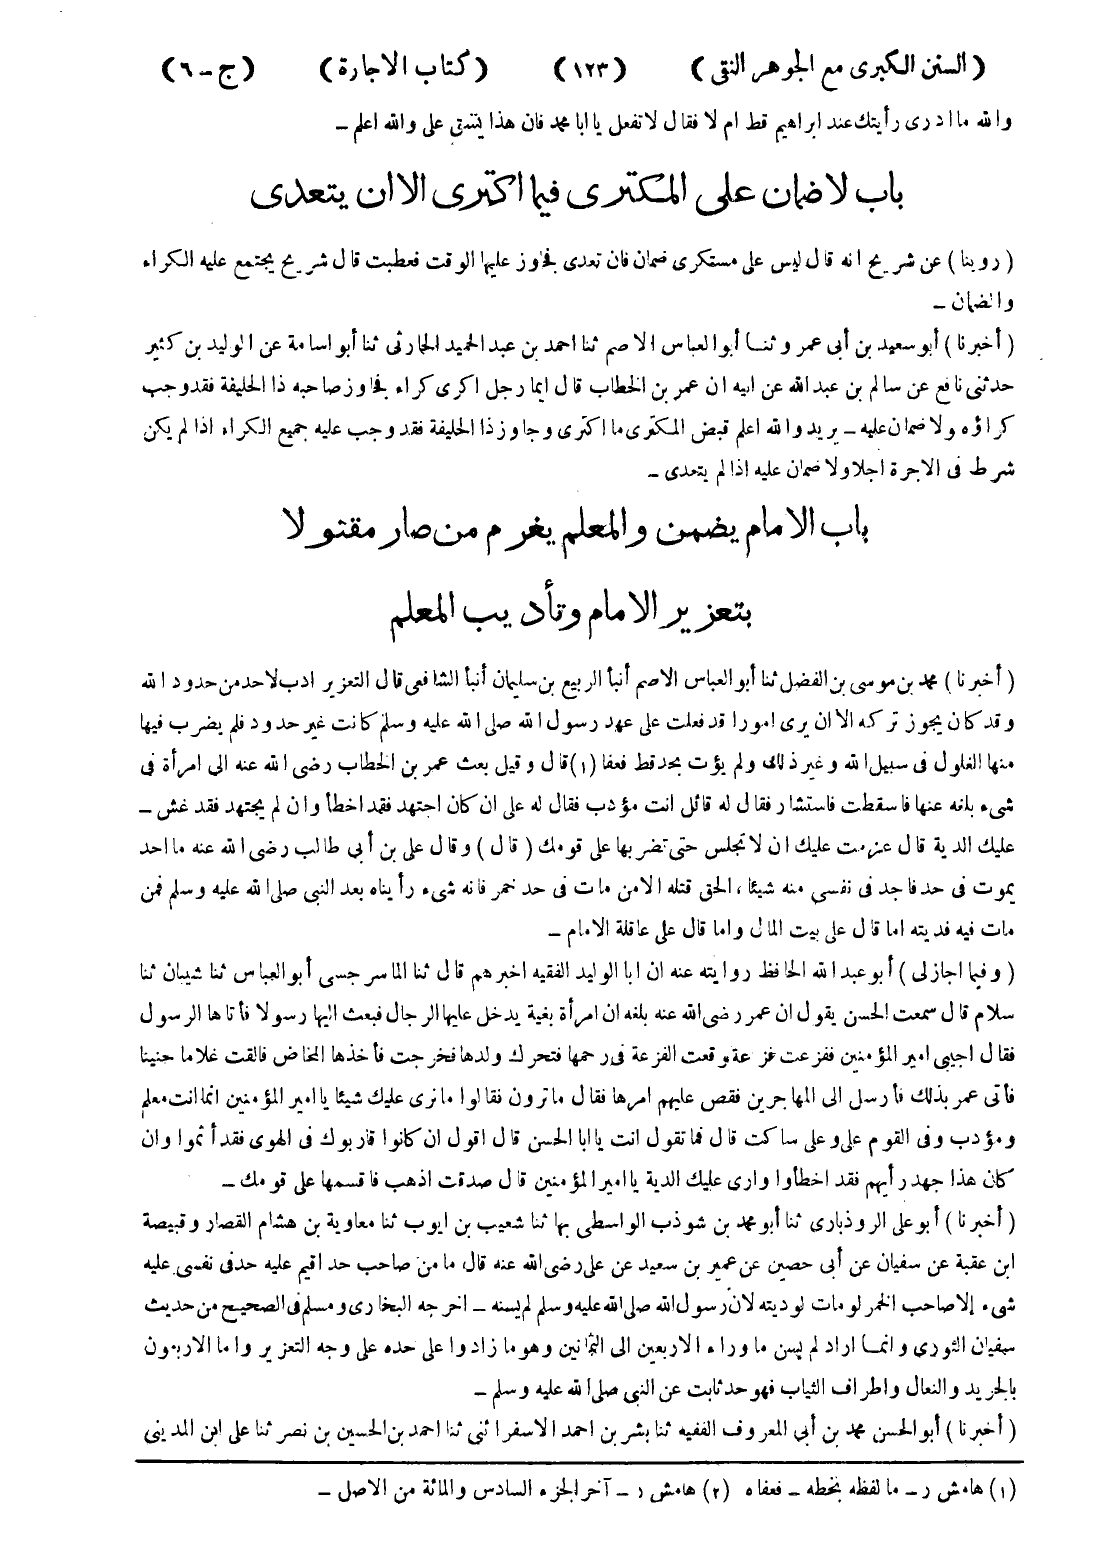 ( السنن الكبرى مع الجوهر النقى ) (١٢٣) ( كتاب الاجارة ) (ج - ٦)
والله ما ادرى رأيتك عند ابراهيم قط ام لا فقال لا تفعل يا ابا محمد فان هذا يشق على والله اعلم -
باب لا ضمان على المكترى فيما اكترى الا ان يتعدى
( روينا ) عن شريح انه قال ليس على مستكرى ضمان فان تعدى فجاوز عليها الوقت فعطبت قال شريح يجتمع عليه الكراء
والضمان -
( أخبرنا ) أبو سعيد بن أبى عمر و ثنا أبو العباس الاصم ثنا احمد بن عبد الحميد الحارثى ثنا أبو اسامة عن الوليد بن كثير
حدثنى نافع عن سالم بن عبد الله عن ابيه ان عمر بن الخطاب قال ايما رجل اكرى كراء فجاوز صاحبه ذا الحليفة فقد وجب
كراؤه ولا ضمان عليه - يريد والله اعلم قبض المكترى ما اكترى وجاوز ذا الحليفة فقد وجب عليه جميع الكراء اذا لم يكن
شرط فى الاجرة اجلا ولا ضمان عليه اذا لم يتعدى -
باب الامام يضمن والمعلم يغرم من صار مقتولا
بتعزير الامام وتأديب المعلم
( أخبرنا ) محمد بن موسى بن الفضل ثنا أبو العباس الاصم أنبأ الربيع بن سليمان أنبأ الشافعى قال التعزير ادب لا حد من حدود الله
وقد كان يجوز تركه الا ان يرى امورا قد فعلت على عهد رسول الله صلى الله عليه وسلم كانت غير حدود فلم يضرب فيها
منها الغلول فى سبيل الله وغير ذلك ولم يؤت بحد قط فعفا (١) قال وقيل بعث عمر بن الخطاب رضى الله عنه الى امرأة فى
شىء بلغه عنها فاسقطت فاستشار فقال له قائل انت مؤدب فقال له على ان كان اجتهد فقد اخطأ وان لم يجتهد فقد غش -
عليك الدية قال عزمت عليك ان لا تجلس حتى تضربها على قومك ( قال ) وقال على بن أبي طالب رضى الله عنه ما احد
يموت فى حد فاجد فى نفسى منه شيئا ، الحق قتله الا من مات فى حد خمر فانه شىء رأيناه بعد النبى صلى الله عليه وسلم فمن
مات فيه فديته اما قال على بيت المال واما قال على عاقلة الامام -
( وفيما اجازلى ) أبو عبد الله الحافظ روايته عنه ان ابا الوليد الفقيه اخبرهم قال ثنا الماسرجسى أبو العباس ثنا شيبان ثنا
سلام قال سمعت الحسن يقول ان عمر رضى الله عنه بلغه ان امرأة بغية يدخل عليها الرجال فبعث اليها رسولا فأتاها الرسول
فقال اجيبى امير المؤمنين ففزعت فزعة وقعت الفزعة فى رحمها فتحرك ولدها فخرجت فأخذها المخاض فالقت غلاما جنينا
فأتى عمر بذلك فأرسل الى المهاجرين فقص عليهم امرها فقال ما ترون فقالوا ما نرى عليك شيئا يا امير المؤمنين انما انت معلم
ومؤدب وفى القوم على وعلى ساكت قال فما تقول انت يا ابا الحسن قال اقول ان كانوا قاربوك فى الهوى فقد أثموا وان
كان هذا جهد رأيهم فقد اخطأوا وارى عليك الدية يا امير المؤمنين قال صدقت اذهب فاقسمها على قومك -
( أخبرنا ) أبو على الروذبارى ثنا أبو محمد بن شوذب الواسطى بها ثنا شعيب بن ايوب ثنا معاوية بن هشام القصار وقبيصة
ابن عقبة عن سفيان عن أبى حصين عن عمير بن سعيد عن على رضى الله عنه قال ما من صاحب حد اقيم عليه حد فى نفسى عليه
شىء إلا صاحب الخمر لو مات لوديته لان رسول الله صلى الله عليه وسلم لم يسنه - اخرجه البخارى ومسلم فى الصحيح من حديث
سفيان الثورى وانما اراد لم يسن ما وراء الاربعين الى الثمانين وهو ما زادوا على حده على وجه التعزير واما الاربعون
بالجريد والنعال واطراف الثياب فهو حد ثابت عن النبى صلى الله عليه وسلم -
( أخبرنا ) أبو الحسن محمد بن أبي المعروف الفقيه ثنا بشر بن احمد الاسفرائنى ثنا احمد بن الحسين بن نصر ثنا على ابن المدينى
(١) هامش ر - ما لفظه بخطه - فعفاه (٢) هامش ر - آخر الجزء السادس والمائة من الاصل -